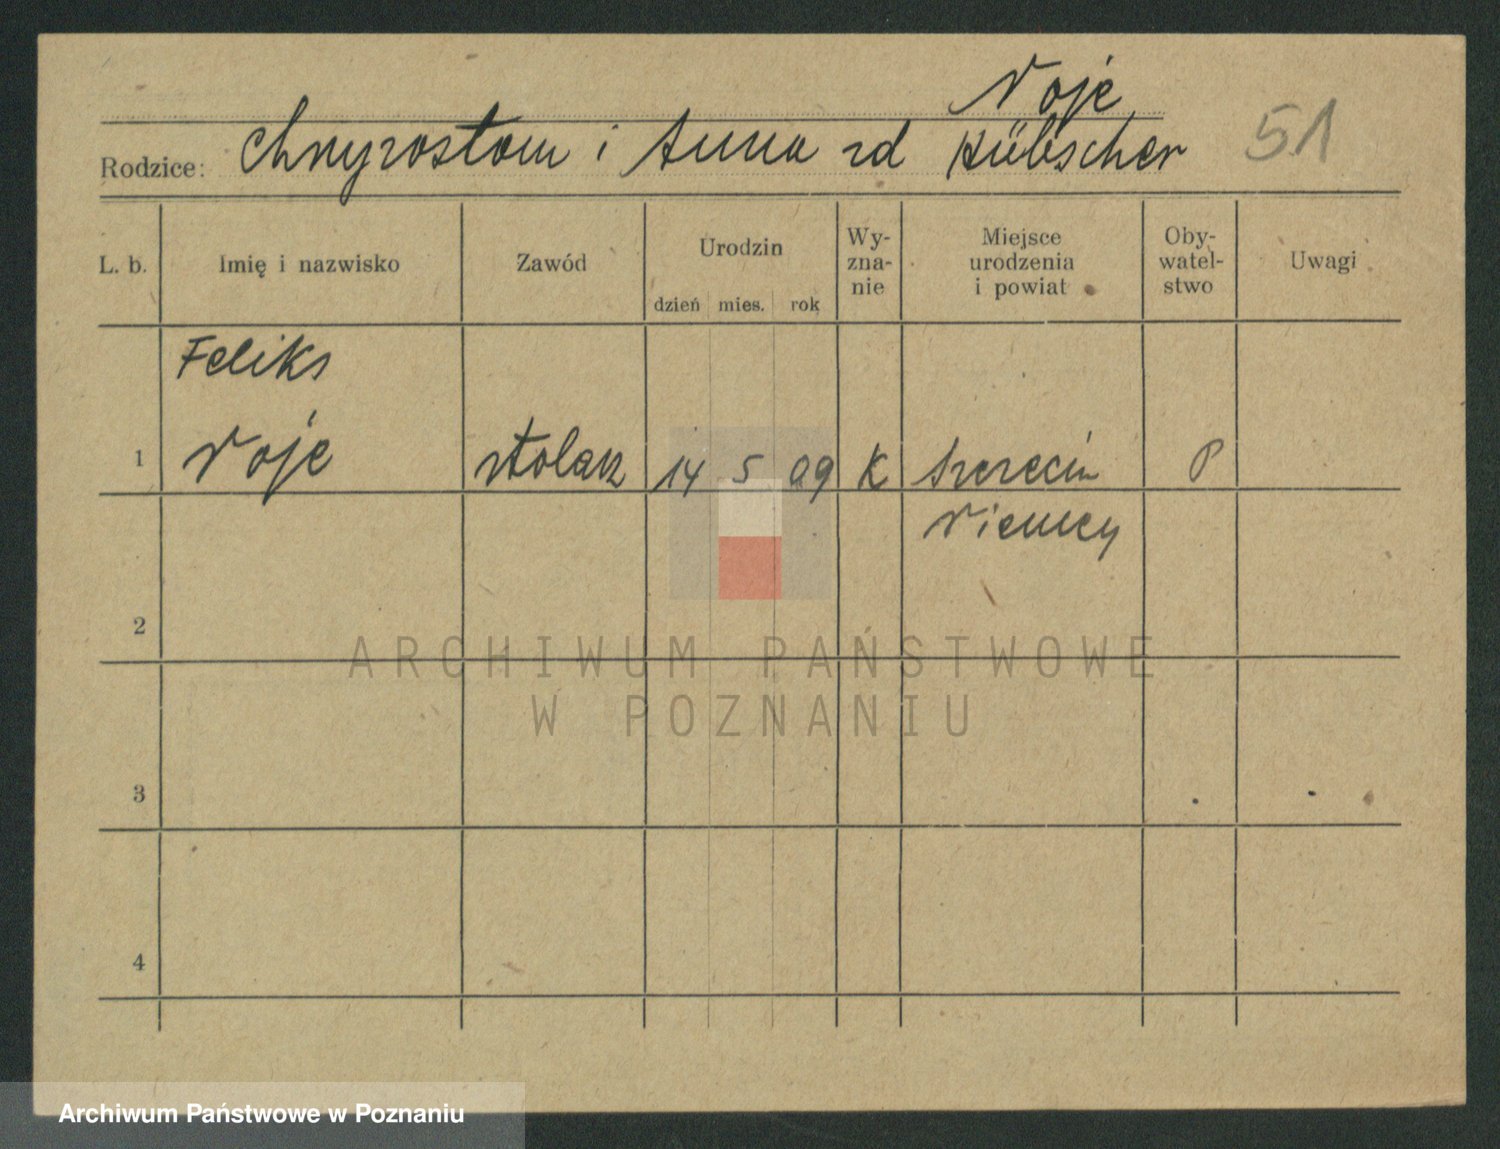 Noje
Rodzice: Chryzostom i Anna zd Hübscher 51
L. b. Imię i nazwisko Zawód Urodzin dzień mies. rok Wy-zna-nie Miejsce urodzenia i powiat Oby-watel-stwo Uwagi
Feliks
1 Noje stolarz 14 5 09 K Szczecin P
Niemcy
2
ARCHIWUM PAŃSTWOWE
W POZNANIU
3
4
Archiwum Państwowe w Poznaniu